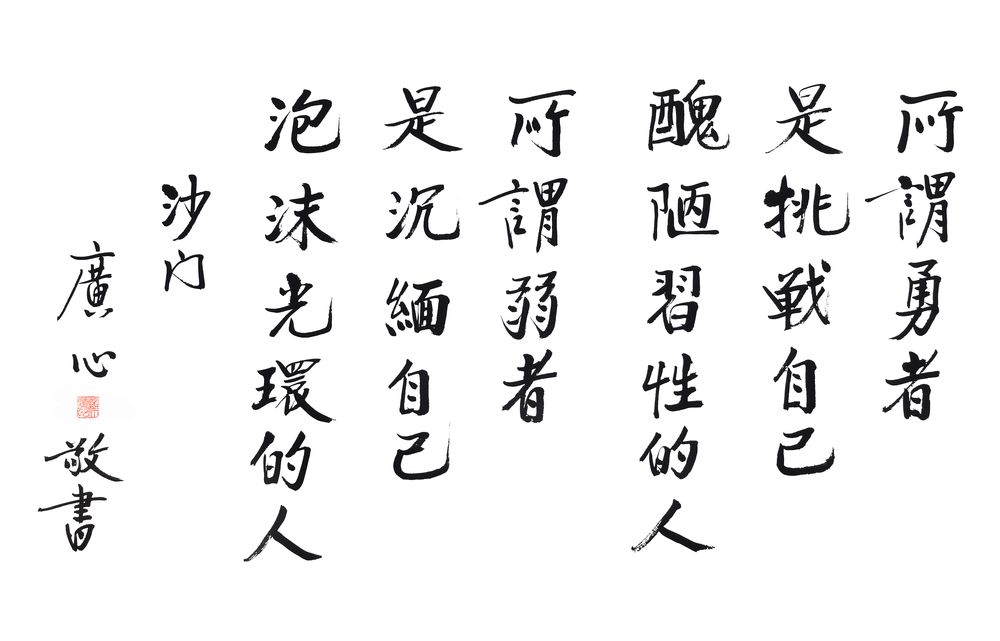 所謂勇者
是挑戰自己
醜陋習性的人
所謂弱者
是沉緬自己
泡沫光環的人
沙门
廣心
敬書